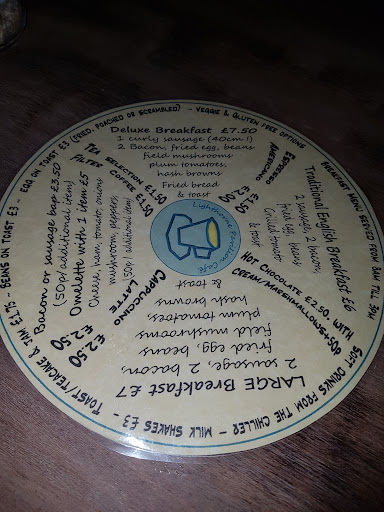 Deluxe Breakfast £7.50
1 curly sausage (40cm!)
2 Bacon, fried egg, beans
field mushrooms
plum tomatoes,
hash browns
Fried bread
& toast
ESPRESSO
AMERICANO
£2.50
Traditional English Breakfast £6
2 sausage, 2 bacon,
fried egg, beans
Grilled tomato
& toast
HOT CHOCOLATE £2.50, WITH
CREAM/MARSHMALLOWS +50p
LARGE Breakfast £7
2 sausage, 2 bacon,
fried egg, beans
field mushrooms
plum tomatoes,
hash browns
& toast
CAPPUCCINO £2.50
LATTE £2.50
Bacon or sausage bap £3.50
(50p/ additional item)
Omelette with 2 items £5
Cheese, ham, tomato, onions
mushroom, peppers
(50p / additional item)
TEA SELECTION £1.50
FILTER COFFEE £1.50
Lighthorne Pavilion Café
EGG ON TOAST £3 (FRIED, POACHED OR SCRAMBLED) - VEGGIE & GLUTEN FREE OPTIONS
BREAKFAST MENU SERVED FROM 8AM TILL 3PM
SOFT DRINKS FROM THE CHILLER - MILK SHAKES £3 - TOAST/TEACAKE & JAM £1.75 - BEANS ON TOAST £3